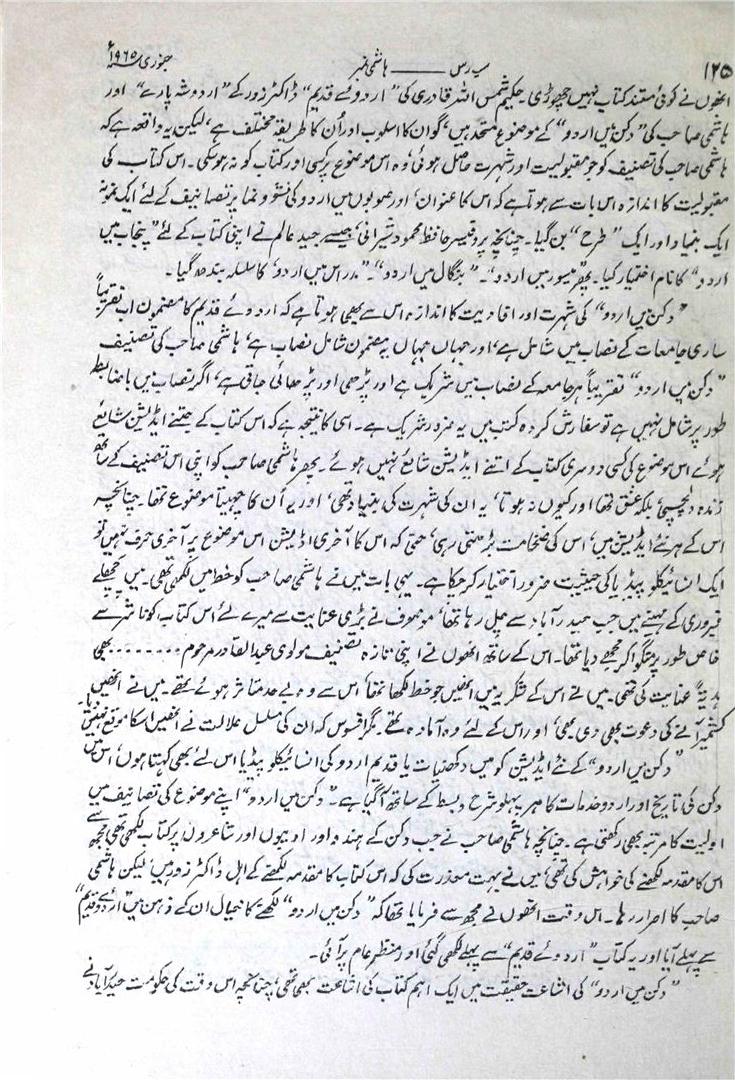 ۱۲۵ سب رس ——— ہاشمی نمبر جنوری ۱۹۶۵ء
انھوں نے کوئی مستند کتاب نہیں چھوڑی۔ حکیم شمس اللہ قادری کی "اردوئے قدیم" ڈاکٹر زور کے "اردو شہ پارے" اور
ہاشمی صاحب کی "دکن میں اردو" کے موضوع متحد ہیں، گو ان کا اسلوب اور اُن کا طریقہ مختلف ہے، لیکن یہ واقعہ ہے کہ
ہاشمی صاحب کی تصنیف کو جو مقبولیت اور شہرت حاصل ہوئی، وہ اس موضوع پر کسی اور کتاب کو نہ ہوسکی۔ اس کتاب کی
مقبولیت کا اندازہ اس بات سے ہوتا ہے کہ اس کا عنوان، اور صوبوں میں اردو کی نشو و نما پر تصانیف کے لئے ایک نمونہ
ایک بنیاد اور ایک "طرح" بن گیا۔ چنانچہ پروفیسر حافظ محمود شیرانی، جیسے جید عالم نے اپنی کتاب کے لئے "پنجاب میں
اردو" کا نام اختیار کیا۔ پھر "میسور میں اردو"۔ "بنگال میں اردو"۔ "مدراس میں اردو" کا سلسلہ بندھ گیا۔
"دکن میں اردو" کی شہرت اور افادیت کا اندازہ اس سے بھی ہوتا ہے کہ اردوئے قدیم کا مضمون اب تقریباً
ساری جامعات کے نصاب میں شامل ہے، اور جہاں جہاں یہ مضمون شامل نصاب ہے، ہاشمی صاحب کی تصنیف
"دکن میں اردو" تقریباً ہر جامعہ کے نصاب میں شریک ہے اور پڑھی اور پڑھائی جاتی ہے، اگر نصاب میں باضابطہ
طور پر شامل نہیں ہے تو سفارش کردہ کتب میں یہ ضرور شریک ہے۔ اسی کا نتیجہ ہے کہ اس کتاب کے جتنے ایڈیشن شایع
ہوئے اس موضوع کی کسی دوسری کتاب کے اتنے ایڈیشن شایع نہیں ہوئے۔ پھر ہاشمی صاحب کو اپنی اس تصنیف کے ساتھ
زندہ دلچسپی، بلکہ عشق تھا اور کیوں نہ ہوتا، یہ ان کی شہرت کی بنیاد تھی، اور یہ اُن کا چہیتا موضوع تھا۔ چنانچہ
اس کے ہر نئے ایڈیشن میں، اس کی ضخامت بڑھتی رہی، حتیٰ کہ اس کا آخری اڈیشن اس موضوع پر آخری حرف نہیں تو
ایک انسائیکلو پیڈیا کی حیثیت ضرور اختیار کرچکا ہے۔ یہی بات میں نے ہاشمی صاحب کو خط میں لکھی تھی۔ میں پچھلے
فبروری کے مہینے میں جب حیدرآباد سے چل رہا تھا، موصوف نے بڑی عنایت سے میرے لئے اس کتاب کو ناشر سے
خاص طور پر منگوا کر مجھے دیا تھا۔ اس کے ساتھ انھوں نے اپنی تازہ تصنیف مولوی عبدالقادر مرحوم ....... بھی
ہدیۃً عنایت کی تھی۔ میں نے اس کے شکریہ میں انھیں جو خط لکھا تھا، اس سے وہ بے حد متاثر ہوئے تھے۔ میں نے انھیں
کشمیر آنے کی دعوت بھی دی تھی، اور اس کے لئے وہ آمادہ تھے۔ مگر افسوس کہ ان کی مسلسل علالت نے انھیں اسکا موقع نہیں دیا۔
"دکن میں اردو" کے نئے ایڈیشن کو میں دکھنیات یا قدیم اردو کی انسائیکلو پیڈیا اس لئے بھی کہتا ہوں، اس میں
دکن کی تاریخ اور اردو خدمات کا ہر پہلو شرح و بسط کے ساتھ آگیا ہے۔ "دکن میں اردو" اپنے موضوع کی تصانیف میں
اولیت کا مرتبہ بھی رکھتی ہے۔ چنانچہ ہاشمی صاحب نے جب دکن کے ہندو اور ادیبوں اور شاعروں پر کتاب لکھی تھی مجھ سے
اس کا مقدمہ لکھنے کی خواہش کی تھی، میں نے بہت معذرت کی کہ اس کتاب کا مقدمہ لکھنے کے اہل ڈاکٹر زور ہیں، لیکن ہاشمی
صاحب کا اصرار رہا۔ اس وقت انھوں نے مجھ سے فرمایا تھا کہ "دکن میں اردو" لکھنے کا خیال ان کے ذہن میں "اردوئے قدیم"
سے پہلے آیا اور یہ کتاب "اردوئے قدیم" سے پہلے لکھی گئی اور منظر عام پر آئی۔
"دکن میں اردو" کی اشاعت حقیقت میں ایک اہم کتاب کی اشاعت بھی تھی، چنانچہ اس وقت کی حکومت حیدرآباد نے